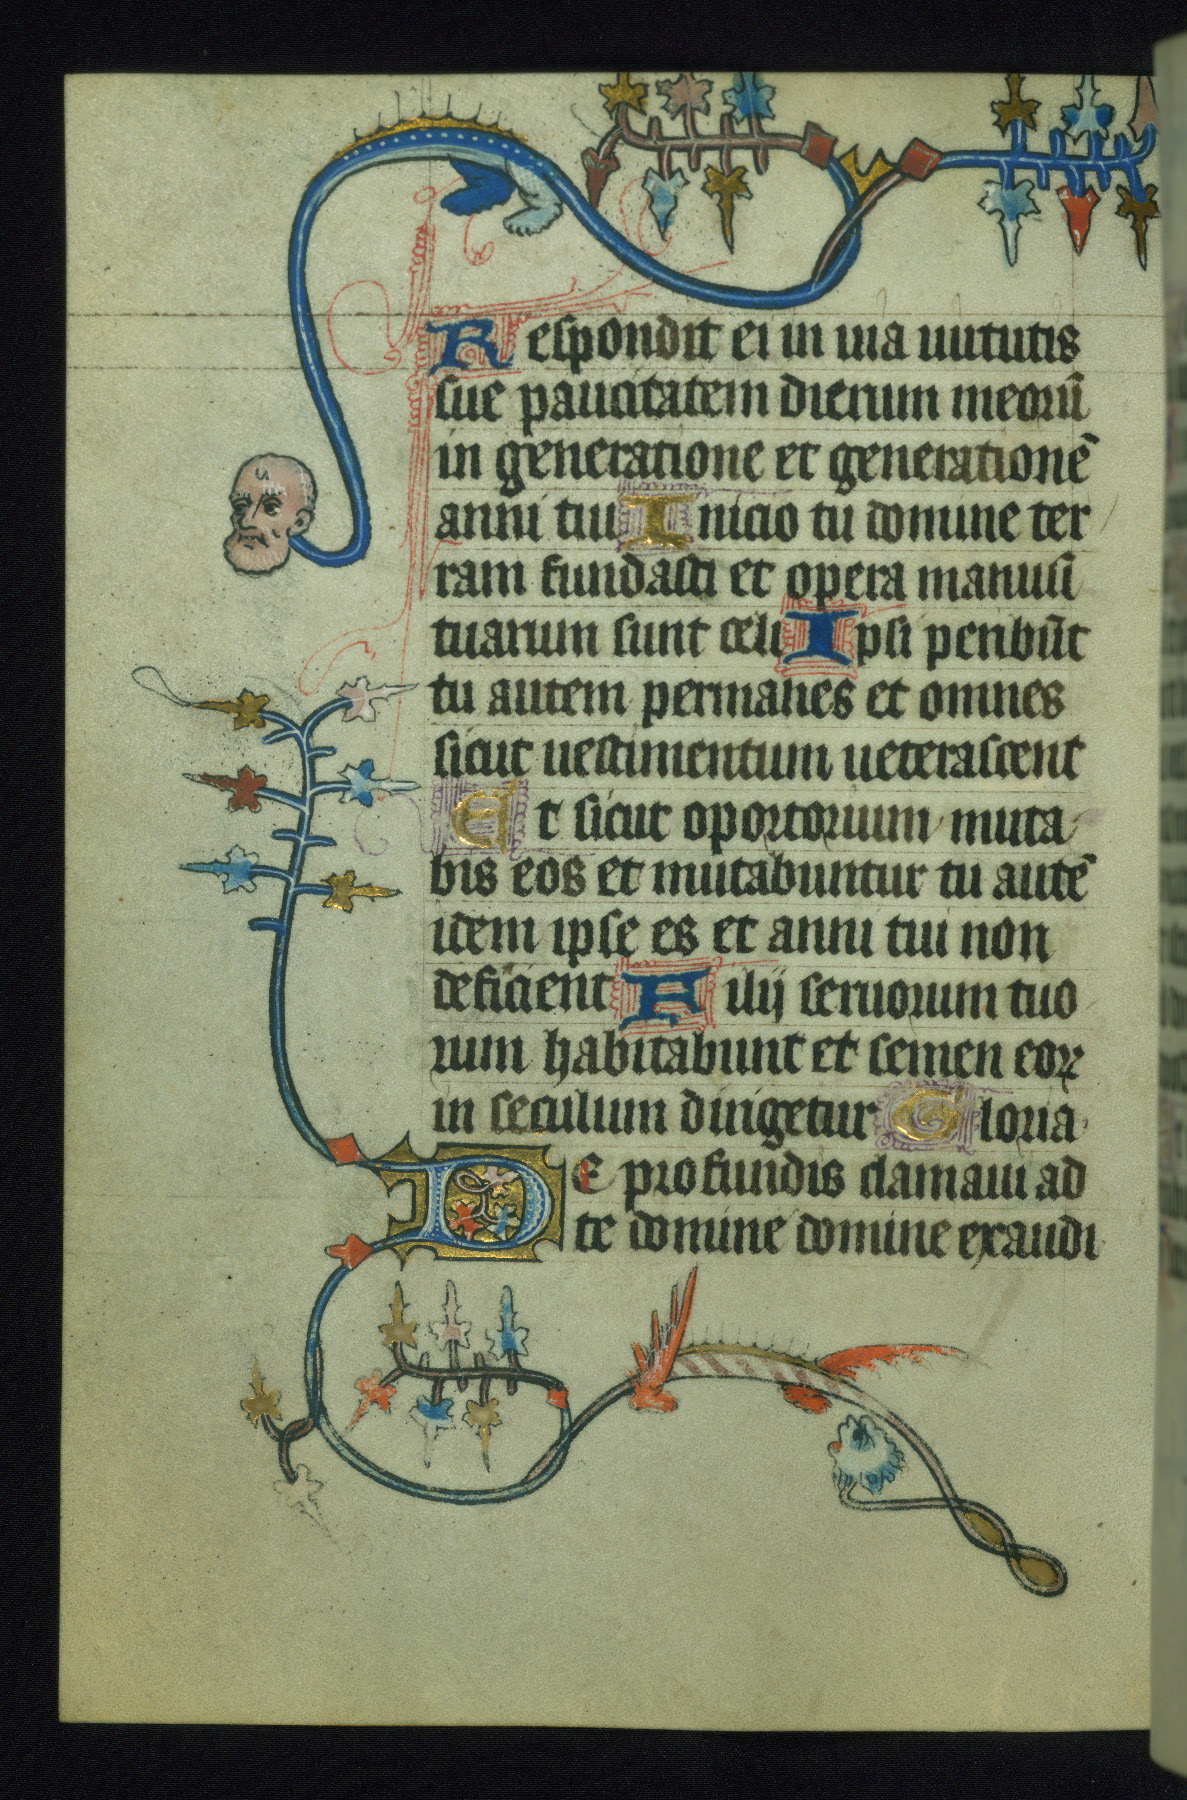 Respondit ei in uia uirtutis
sue paucitatem dierum meorū
in generatione et generationē
anni tui Inicio tu domine ter
ram fundasti et opera manuū
tuarum sunt celi Ipsi peribūt
tu autem permanes et omnes
sicut uestimentum ueterascent
Et sicut oportorium muta
bis eos et mutabuntur tu autē
idem ipse es et anni tui non
deficient Filij seruorum tuo
rum habitabunt et semen eoꝝ
in seculum dirigetur Gloria
De profundis clamaui ad
te domine domine exaudi